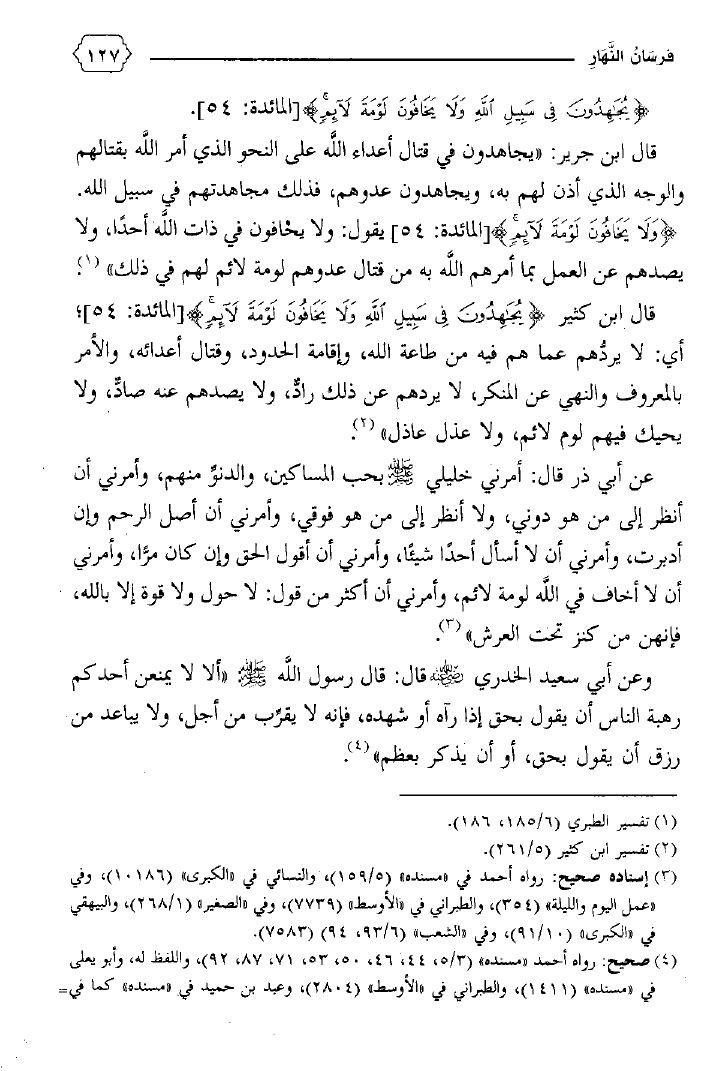 فرسَانُ النَّهَارِ
١٢٧
﴿يُجَٰهِدُونَ فِى سَبِيلِ ٱللَّهِ وَلَا يَخَافُونَ لَوْمَةَ لَآئِمٍ ۚ﴾[المائدة: ٥٤].
قال ابن جرير: «يجاهدون في قتال أعداء اللَّه على النحو الذي أمر اللَّه بقتالهم
والوجه الذي أذن لهم به، ويجاهدون عدوهم، فذلك مجاهدتهم في سبيل الله.
﴿وَلَا يَخَافُونَ لَوْمَةَ لَآئِمٍ ۚ﴾[المائدة: ٥٤] يقول: ولا يخافون في ذات اللَّه أحدًا، ولا
يصدهم عن العمل بما أمرهم اللَّه به من قتال عدوهم لومة لائم لهم في ذلك» (١).
قال ابن كثير ﴿يُجَٰهِدُونَ فِى سَبِيلِ ٱللَّهِ وَلَا يَخَافُونَ لَوْمَةَ لَآئِمٍ ۚ﴾[المائدة: ٥٤]؛
أي: لا يردُّهم عما هم فيه من طاعة الله، وإقامة الحدود، وقتال أعدائه، والأمر
بالمعروف والنهي عن المنكر، لا يردهم عن ذلك رادٌّ، ولا يصدهم عنه صادٌّ، ولا
يحيك فيهم لوم لائم، ولا عذل عاذل» (٢).
عن أبي ذر قال: أمرني خليلي ﷺ بحب المساكين، والدنوِّ منهم، وأمرني أن
أنظر إلى من هو دوني، ولا أنظر إلى من هو فوقي، وأمرني أن أصل الرحم وإن
أدبرت، وأمرني أن لا أسأل أحدًا شيئًا، وأمرني أن أقول الحق وإن كان مرًّا، وأمرني
أن لا أخاف في اللَّه لومة لائم، وأمرني أن أكثر من قول: لا حول ولا قوة إلا بالله،
فإنهن من كنز تحت العرش» (٣).
وعن أبي سعيد الخدري رضي الله عنه قال: قال رسول اللَّه ﷺ «ألا لا يمنعن أحدكم
رهبة الناس أن يقول بحق إذا رآه أو شهده، فإنه لا يقرِّب من أجل، ولا يباعد من
رزق أن يقول بحق، أو أن يذكر بعظم» (٤).
(١) تفسير الطبري (٦/ ١٨٥، ١٨٦).
(٢) تفسير ابن كثير (٥/ ٢٦١).
(٣) إسناده صحيح: رواه أحمد في «مسنده» (٥/ ١٥٩)، والنسائي في «الكبرى» (١٠١٨٦)، وفي
«عمل اليوم والليلة» (٣٥٤)، والطبراني في «الأوسط» (٧٧٣٩)، وفي «الصغير» (١/ ٢٦٨)، والبيهقي
في «الكبرى» (١٠/ ٩١)، وفي «الشعب» (٦/ ٩٣، ٩٤) (٧٥٨٣).
(٤) صحيح: رواه أحمد «مسنده» (٣/ ٥، ٤٤، ٤٦، ٥٠، ٥٣، ٧١، ٨٧، ٩٢)، واللفظ له، وأبو يعلى
في «مسنده» (١٤١١)، والطبراني في «الأوسط» (٢٨٠٤)، وعبد بن حميد في «مسنده» كما في=